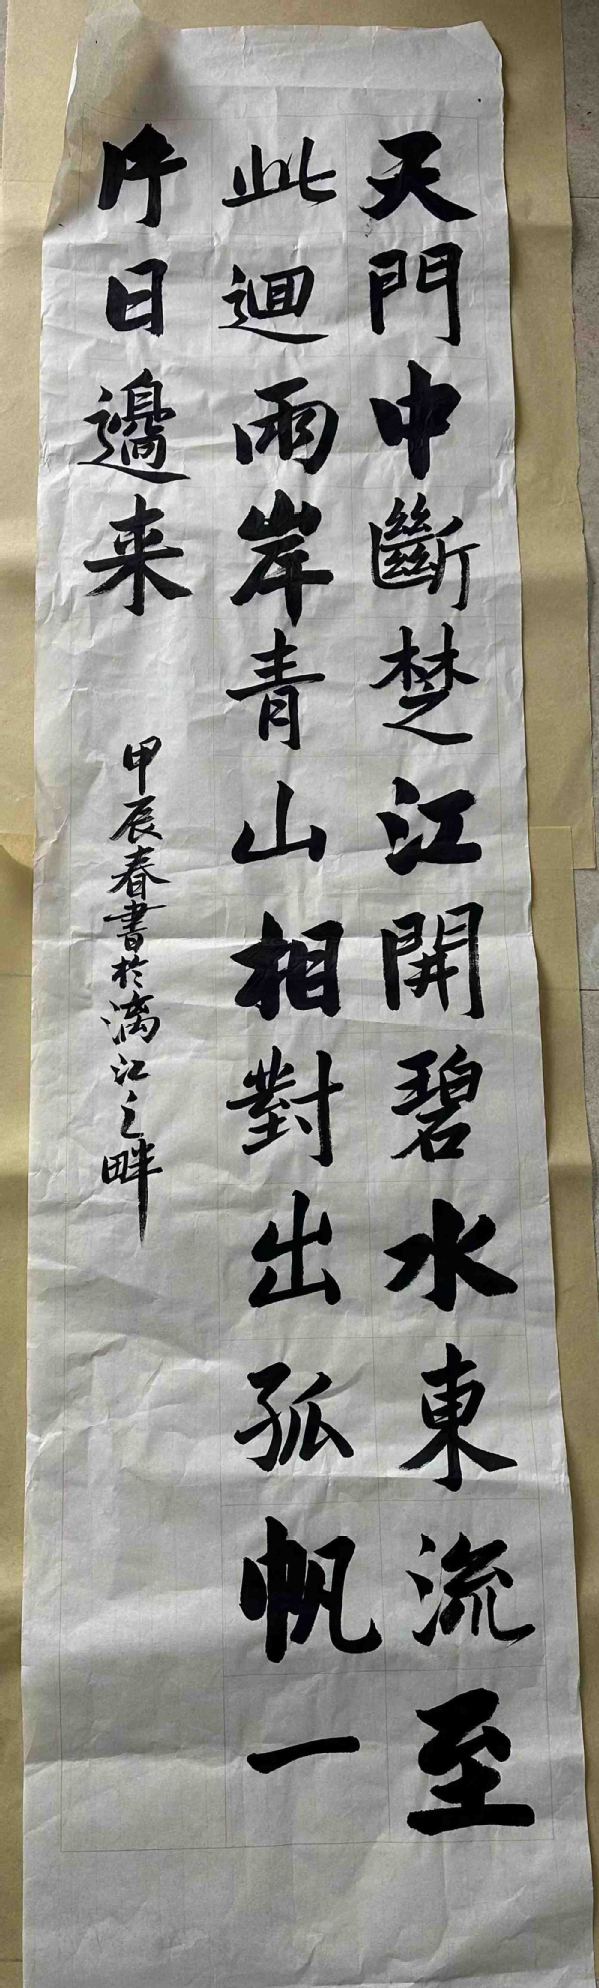 天門中斷楚江開碧水東流至
此迴雨岸青山相對出孤帆一
片日邊来
甲辰春書於漓江之畔